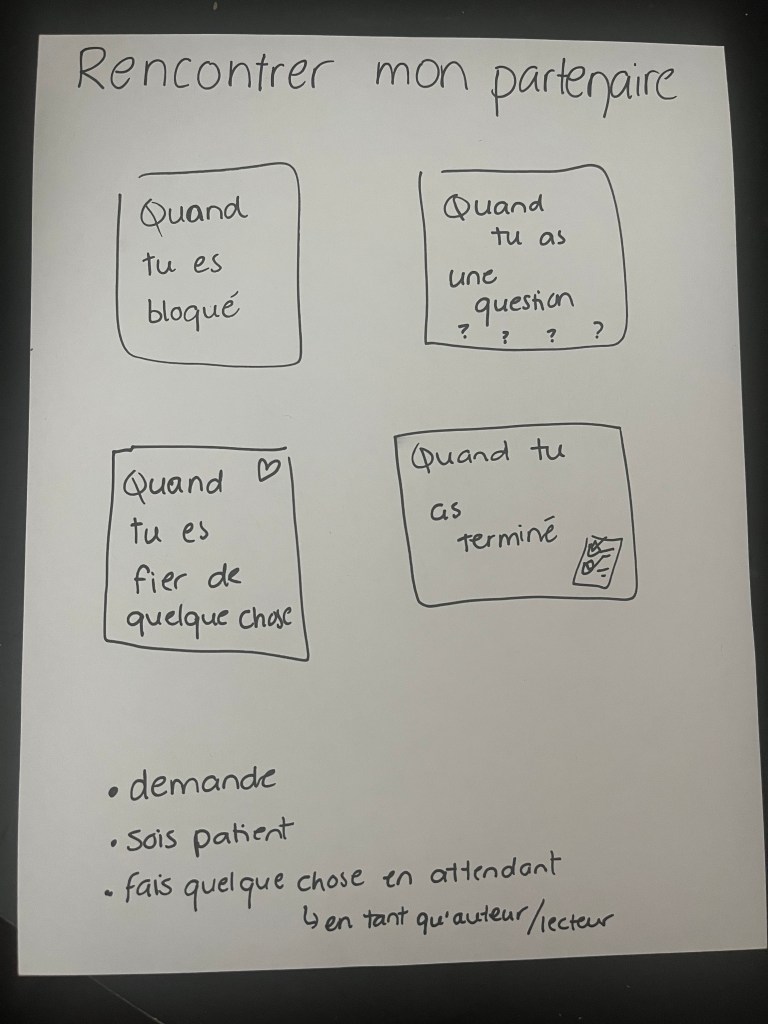 Rencontrer mon partenaire
Quand
tu es
bloqué
Quand
tu as
une
question
? ? ? ?
Quand
tu es
fier de
quelque chose
Quand tu
as
terminé
• demande
• sois patient
• fais quelque chose en attendant
↳ en tant qu'auteur/lecteur